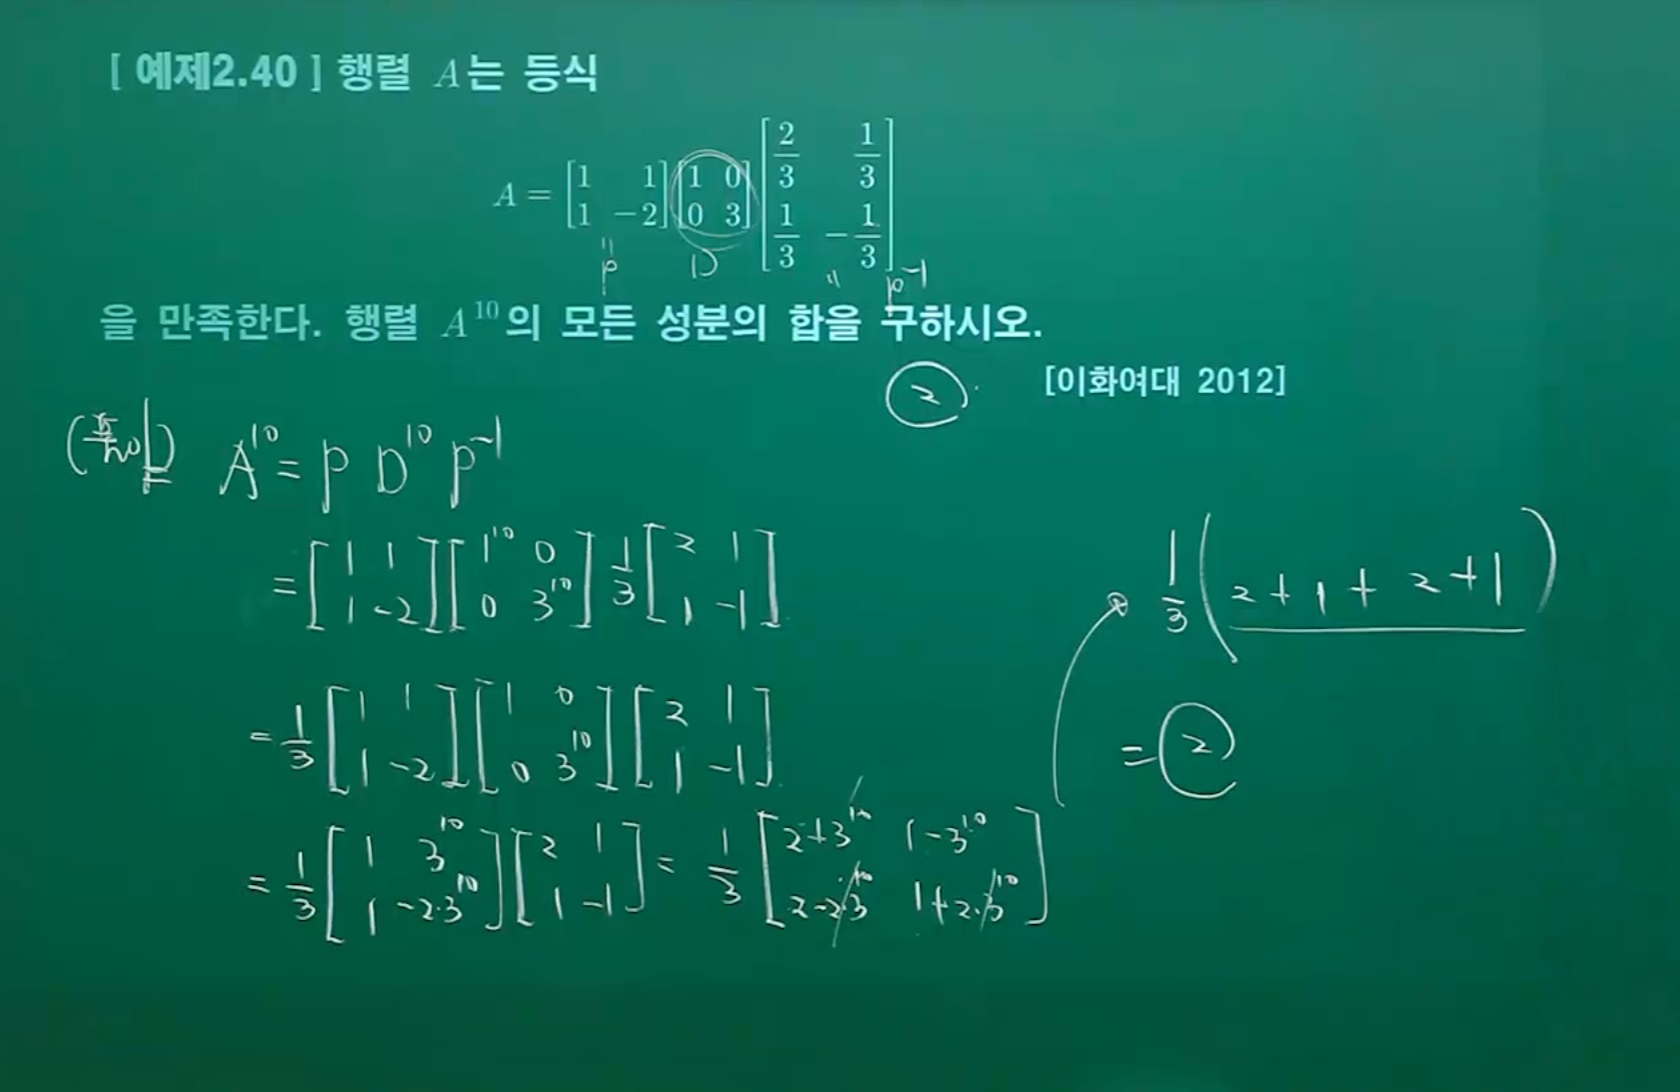 [ 예제2.40 ] 행렬 A는 등식
A = [1 1; 1 −2] [1 0; 0 3] [2/3 1/3; 1/3 −1/3]
" P D " P⁻¹
을 만족한다. 행렬 A¹⁰의 모든 성분의 합을 구하시오.
② 
[이화여대 2012]
(풀이) A¹⁰ = P D¹⁰ P⁻¹
= [1 1; 1 −2] [1¹⁰ 0; 0 3¹⁰] 1/3 [2 1; 1 −1]
= 1/3 [1 1; 1 −2] [1 0; 0 3¹⁰] [2 1; 1 −1]
= 1/3 [1 3¹⁰; 1 −2·3¹⁰] [2 1; 1 −1] = 1/3 [2+3¹⁰ 1−3¹⁰; 2−2·3¹⁰ 1+2·3¹⁰]
1/3 (2+1+2+1)
= ②